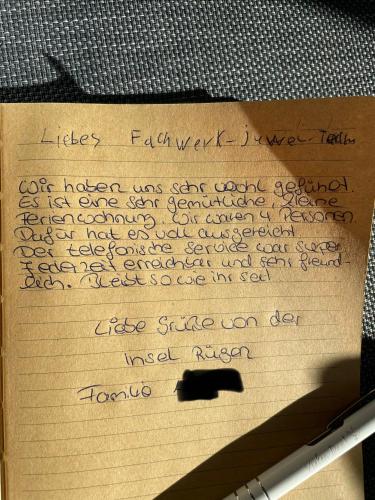 Liebes Fachwerk-juwel-Team
Wir haben uns sehr wohl gefühlt.
Es ist eine sehr gemütliche, kleine
Ferienwohnung. Wir waren 4 Personen
Dafür hat es voll ausgereicht
Der telefonische Service war super
Jederzeit erreichbar und sehr freund-
lich. Bleibt so wie ihr seit
Liebe Grüße von der
Insel Rügen
Familie